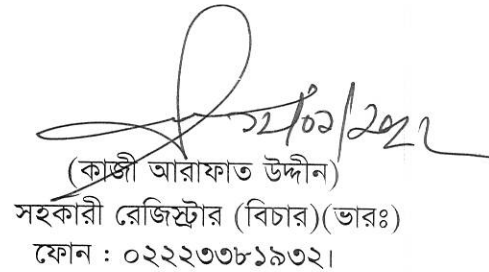 ১২/০১/২০২২
(কাজী আরাফাত উদ্দীন)
সহকারী রেজিস্ট্রার (বিচার)(ভারঃ)
ফোন : ০২২২৩৩৮১৯৩২।